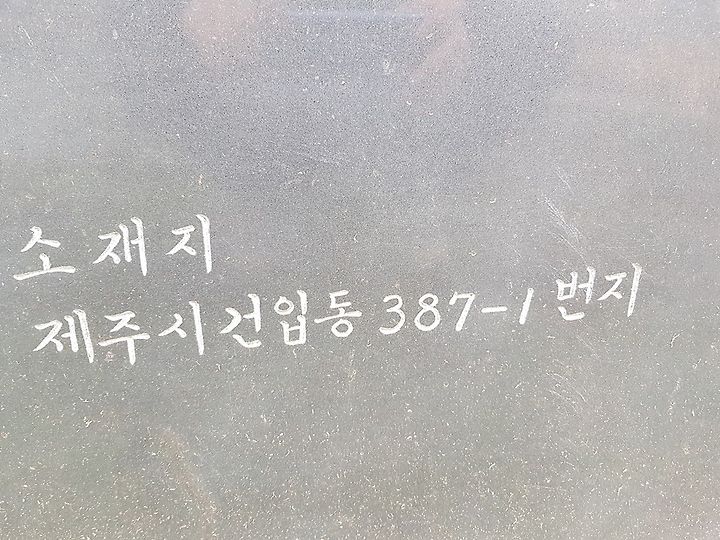 소재지
제주시건입동 387-1 번지